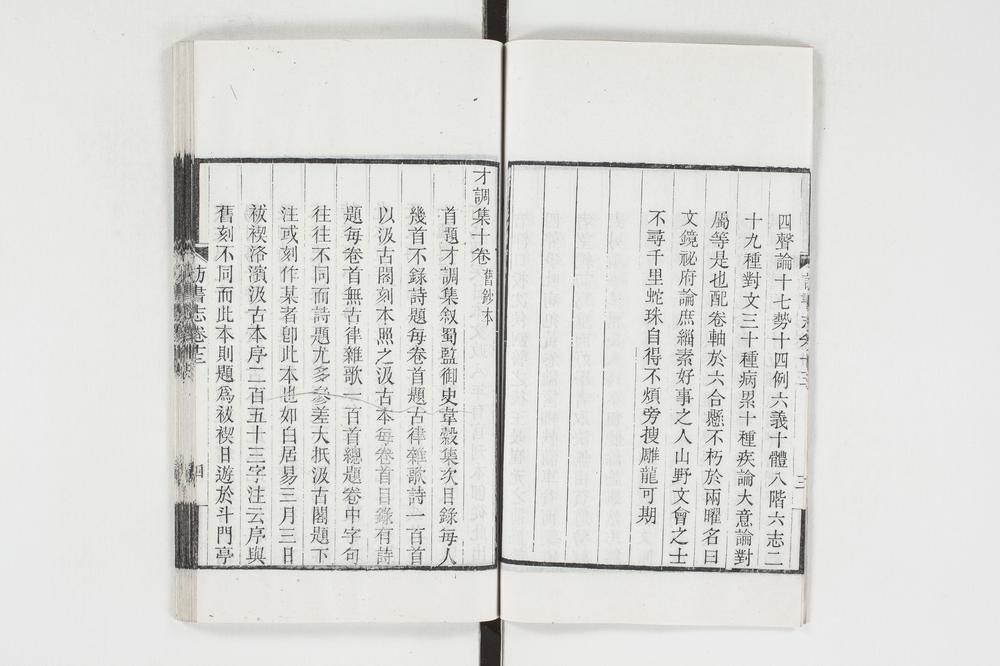 四聲論十七勢十四例六義十體八階六志二
十九種對文三十種病累十種疾論大意論對
屬等是也配卷軸於六合懸不朽於兩曜名曰
文鏡祕府論庶緇素好事之人山野文會之士
不尋千里蛇珠自得不煩旁搜雕龍可期
三
才調集十卷 舊鈔本
首題才調集叙蜀監御史韋縠集次目錄每人
幾首不錄詩題每卷首題古律雜歌詩一百首
以汲古閣刻本照之汲古本每卷首目錄有詩
題每卷首無古律雜歌一百首總題卷中字句
往往不同而詩題尤多參差大抵汲古閣題下
注或刻作某者卽此本也如白居易三月三日
祓禊洛濱汲古本序二百五十三字注云序與
舊刻不同而此本則題爲祓禊日遊於斗門亭
訪書志卷十三
四